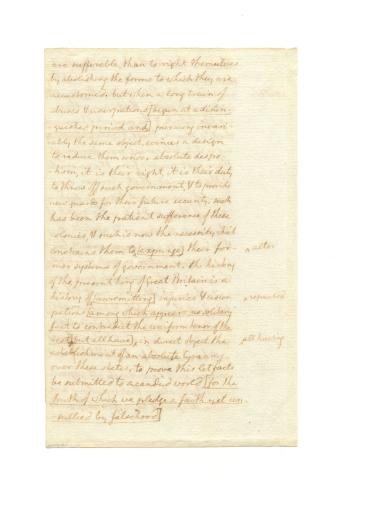 are sufferable, than to right themselves
by abolishing the forms to which they are
accustomed. but when a long train of
abuses & usurpations [begun at a distin-
guished period and] pursuing invari-
ably the same object, evinces a design
to reduce them under absolute despo-
tism, it is their right, it is their duty
to throw off such government, & to provide
new guards for their future security. such
has been the patient sufferance of these
colonies, & such is now the necessity which
constrains them to [expunge] their for-
^ alter
mer systems of government. the history
of the present king of Great Britain is a
history of [unremitting] injuries & usur-
^ repeated
pations [among which appears no solitary
fact to contradict the uniform tenor of the
rest, but all have] in direct object the
^ all having
establishment of an absolute tyranny
over these states. to prove this let facts
be submitted to a candid world [for the
truth of which we pledge a faith yet un-
-sullied by falsehood]